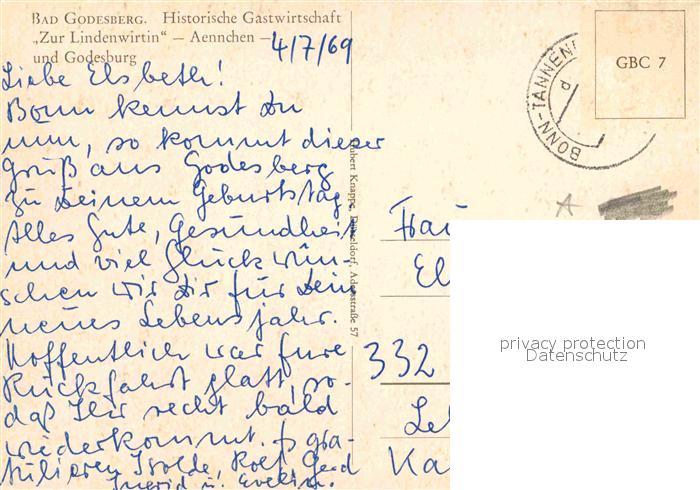 BAD GODESBERG. Historische Gastwirtschaft
„Zur Lindenwirtin“ — Aennchen —
und Godesburg
4/7/69
GBC 7
BONN-TANNEN
d
Liebe Elsbeth!
Bonn kennst Du
nun, so kommt dieser
Gruß aus Godesberg
Zu Deinem Geburtstag
Alles Gute, Gesundheit
und viel Glück wün-
schen wir Dir für Dein
neues Lebensjahr.
Hoffentlich war Eure
Rückfahrt glatt, so-
daß Ihr recht bald
wiederkommt. Es gra-
tulieren Isolde, Rolf, Gerd
Ingrid u. Evelin.
Hubert Knappe, Düsseldorf, Adersstraße 57
Frau
El
332
Le
Ka
privacy protection
Datenschutz